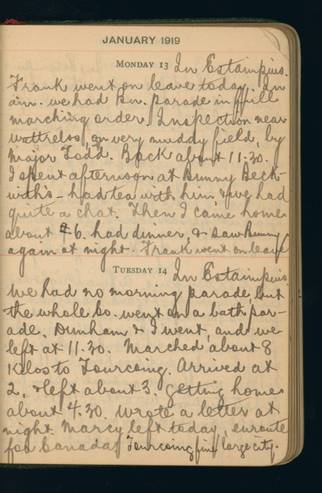 JANUARY 1919
MONDAY 13 In Estaimpuis.
Frank went on leave today. In
a.m. we had Bn. parade in full
marching order. Inspection near
Wattrelos, on very muddy field, by
Major Todd. Back about 11.30.
I spent afternoon at Bunny Beck-
with's - had tea with him, & we had
quite a chat. Then I came home
about 6. had dinner, & saw Bunny
again at night. Frank went on leave
TUESDAY 14 In Estaimpuis
We had no morning parade, but
the whole Co. went on a bath par-
ade. Dunham & I went, and we
left at 11.30. Marched about 8
Kilos to Tourcoing. Arrived at
2, & left about 3. getting home
about 4.30. Wrote a letter at
night. Marcy left today, enroute
for Canada. Tourcoing fine large city.